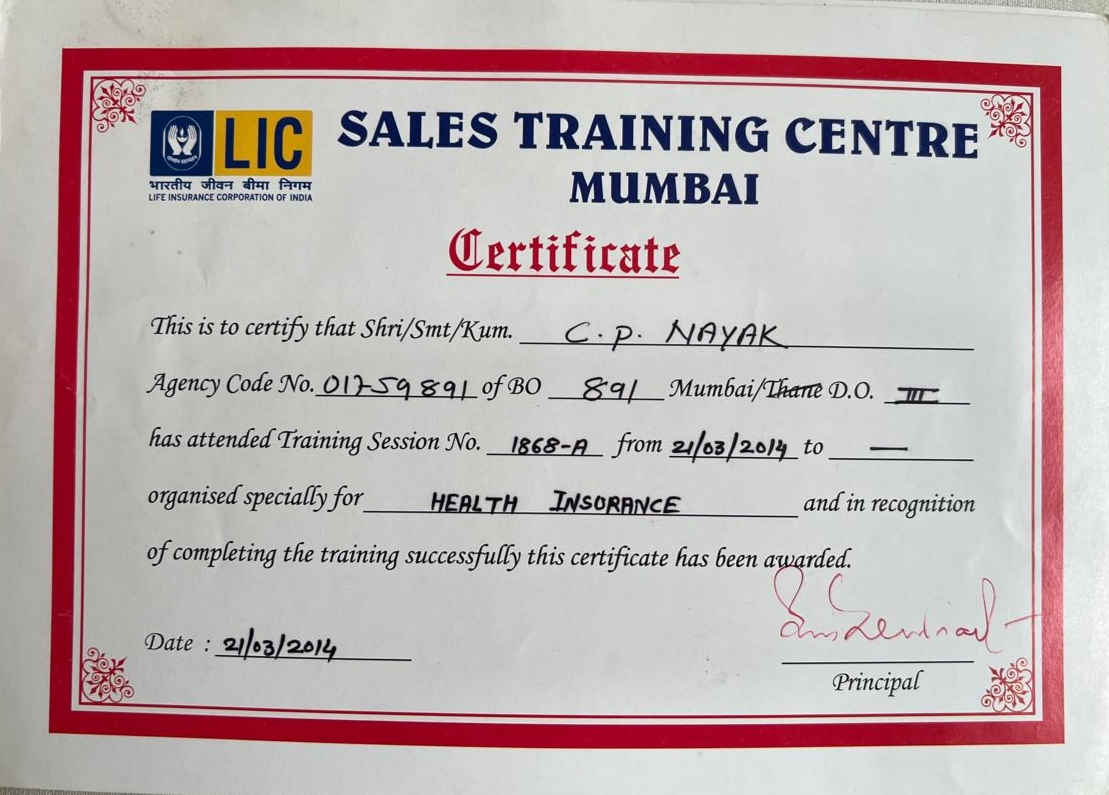 LIC
भारतीय जीवन बीमा निगम
LIFE INSURANCE CORPORATION OF INDIA
SALES TRAINING CENTRE
MUMBAI
Certificate
This is to certify that Shri/Smt/Kum. C. P. NAYAK
Agency Code No. 01759891 of BO 891 Mumbai/Thane D.O. III
has attended Training Session No. 1868-A from 21/03/2014 to —
organised specially for HEALTH INSURANCE and in recognition
of completing the training successfully this certificate has been awarded.
Date : 21/03/2014
Principal